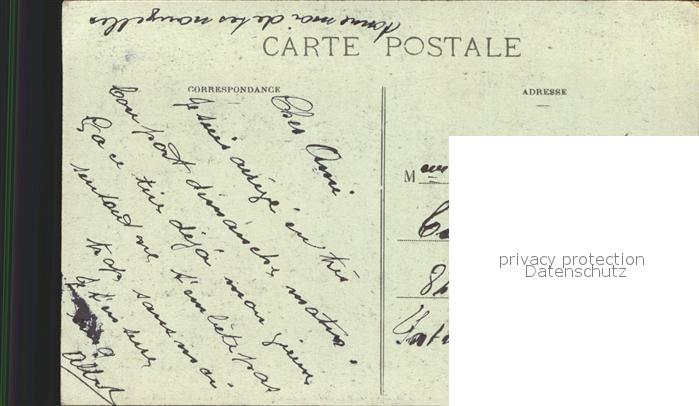 donne moi de tes nouvelles
CARTE POSTALE
CORRESPONDANCE
ADRESSE
Cher Ami
Je suis arrivé en très
bon port dimanche matin.
Ça ce tire déjà mon vieux
surtout ne t'embête pas
trop sans moi.
Je t'en serre
Albert
M
privacy protection
Datenschutz